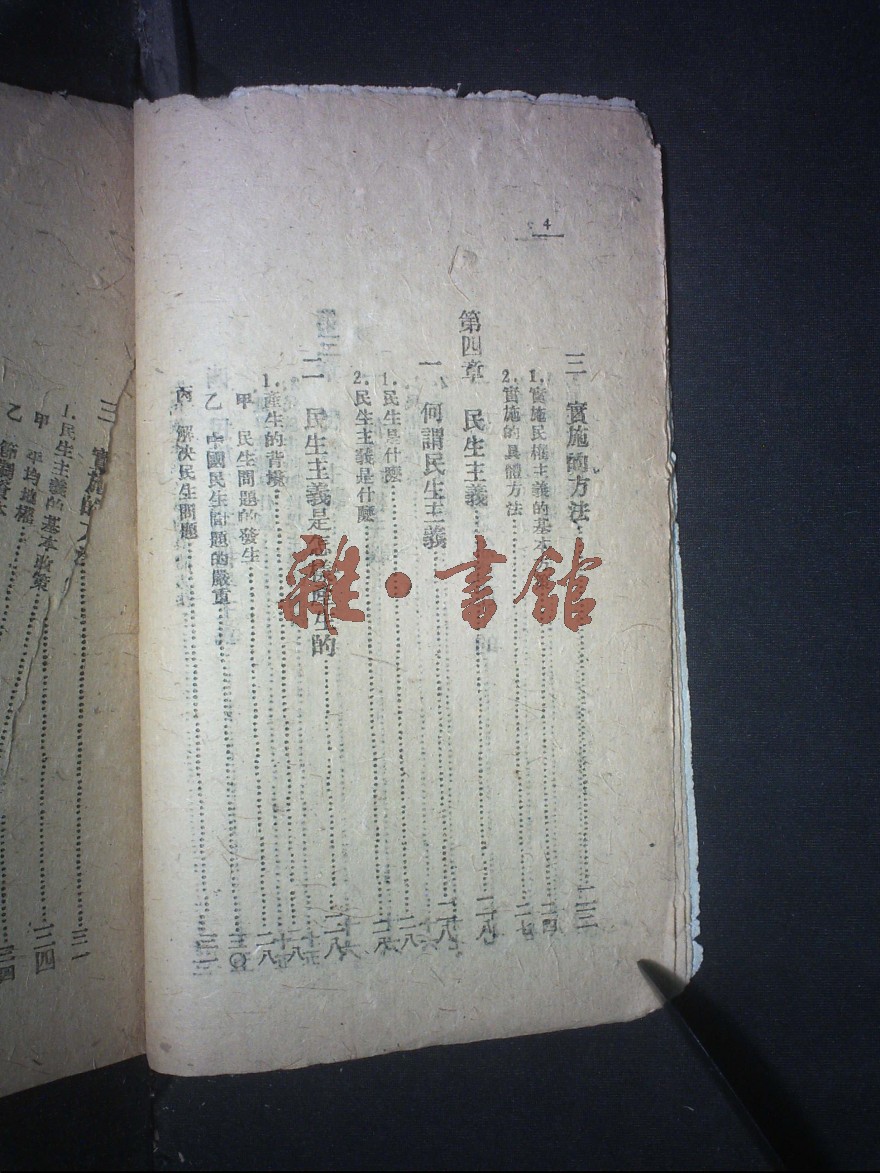 4
三 實施的方法 二三
1.實施民權主義的基本 二四
2.實施的具體方法 二七
第四章 民生主義 二八
一、何謂民生主義 二八
1.民生是什麼 二八
2.民生主義是什麼 二八
二 民生主義是怎樣產生的 二八
1.產生的背境 二八
甲 民生問題的發生 二八
乙 中國民生問題的嚴重 三〇
丙 解決民生問題
三 實施的方法 三一
1.民生主義的基本政策 三四
甲 平均地權
乙 節制資本 三四
雜·書館